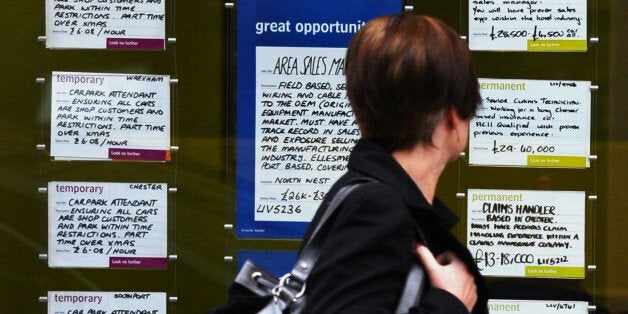 PARK WITHIN TIME
RESTRICTIONS. PART TIME
OVER XMAS
£6·08 / HOUR
Look no further
temporary
WREXHAM
CAR PARK ATTENDANT
ENSURING ALL CARS
ARE SHOP CUSTOMERS
AND PARK WITHIN TIME
RESTRICTIONS. PART
TIME OVER XMAS
£6·08 / HOUR
Look no further
temporary
CHESTER
CAR PARK ATTENDANT
ENSURING ALL CARS
ARE SHOP CUSTOMERS
AND PARK WITHIN TIME
RESTRICTIONS. PART
TIME OVER XMAS
£6·08 / HOUR
Look no further
temporary
SOUTHPORT
CAR PARK ATTENDANT
great opportunit
AREA SALES MA
FIELD BASED, SE
WIRING AND CABLE
TO THE OEM (ORIGIN
EQUIPMENT MANUFAC
MARKET. MUST HAVE
TRACK RECORD IN SALES
AND EXPOSURE
THE MANUFACTURING
INDUSTRY. ELLESME
PORT BASED, COVERIN
NORTH WEST
£26K-£3
LIV5236
sales
manager.
You will have proven sales
exp within the hotel industry
Look no further
permanent
Senior Claims Technician
working for a busy Chester
based insurance co.
ACII Qualified with proven
previous experience.
£29-40,000
Look no further
permanent
CLAIMS HANDLER
BASED IN CHESTER.
MUST HAVE
HANDLING EXPERIENCE WITHIN A
CLAIMS MANAGEMENT COMPANY.
£13-18,000
LIV5213
Look no further
permanent